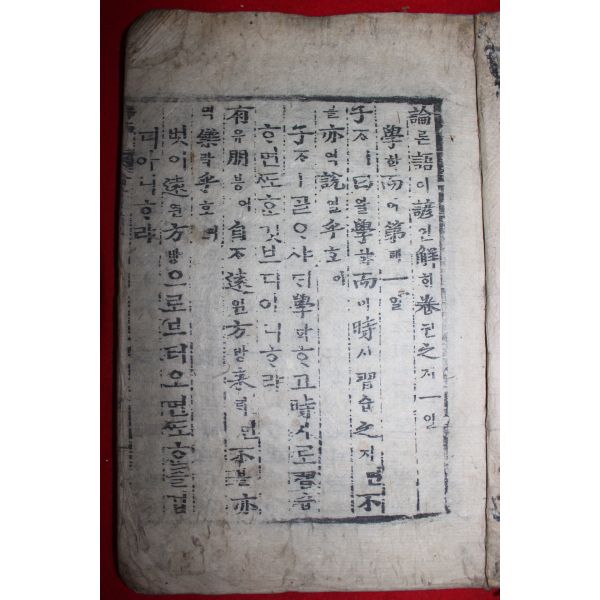 論론語어諺언解ᄒᆡ卷권之지一일
學ᄒᆞᆨ而이第뎨一일
子ᄌᆞㅣ曰왈學ᄒᆞᆨ而이時시習습之지면不
블亦역說열乎호아
子ᄌᆞㅣᄀᆞᆯᄋᆞ샤ᄃᆡ學ᄒᆞᆨᄒᆞ고時시로習습
ᄒᆞ면도ᄒᆞᆫ깃브디아니ᄒᆞ랴
有유朋붕이自ᄌᆞ遠원方방來ᄅᆡ면不블亦
역樂락乎호아
벗이遠원方방으로브터오면도ᄒᆞᆫ즐겁
디아니ᄒᆞ랴